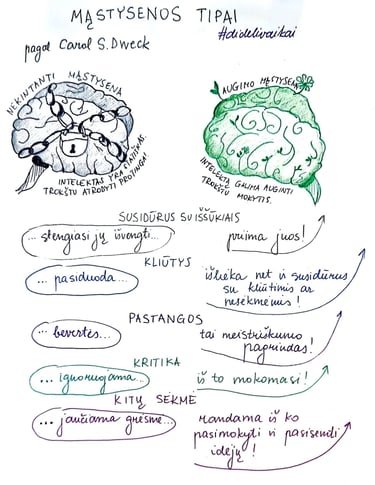 MĄSTYSENOS TIPAI
pagal Carol S. Dweck
#didelivaikai
NEKINTANTI MĄSTYSENA
INTELEKTAS YRA STATIŠKAS.
TROKŠTU ATRODYTI PROTINGAI.
AUGIMO MĄSTYSENA
INTELEKTĄ GALIMA AUGINTI
TROKŠTU MOKYTIS.
SUSIDŪRUS SU IŠŠŪKIAIS
... stengiasi jų išvengti...
priima juos!
KLIŪTYS
... pasiduoda...
išlieka net ir susidūrus
su kliūtimis ar
nesėkmėmis!
PASTANGOS
... bevertės...
tai meistriškumo
pagrindas!
KRITIKA
... ignoruojama...
iš to mokomasi!
KITŲ SĖKMĖ
... jaučiama grėsmė...
randama iš ko
pasimokyti ir pasisemti
idėjų!